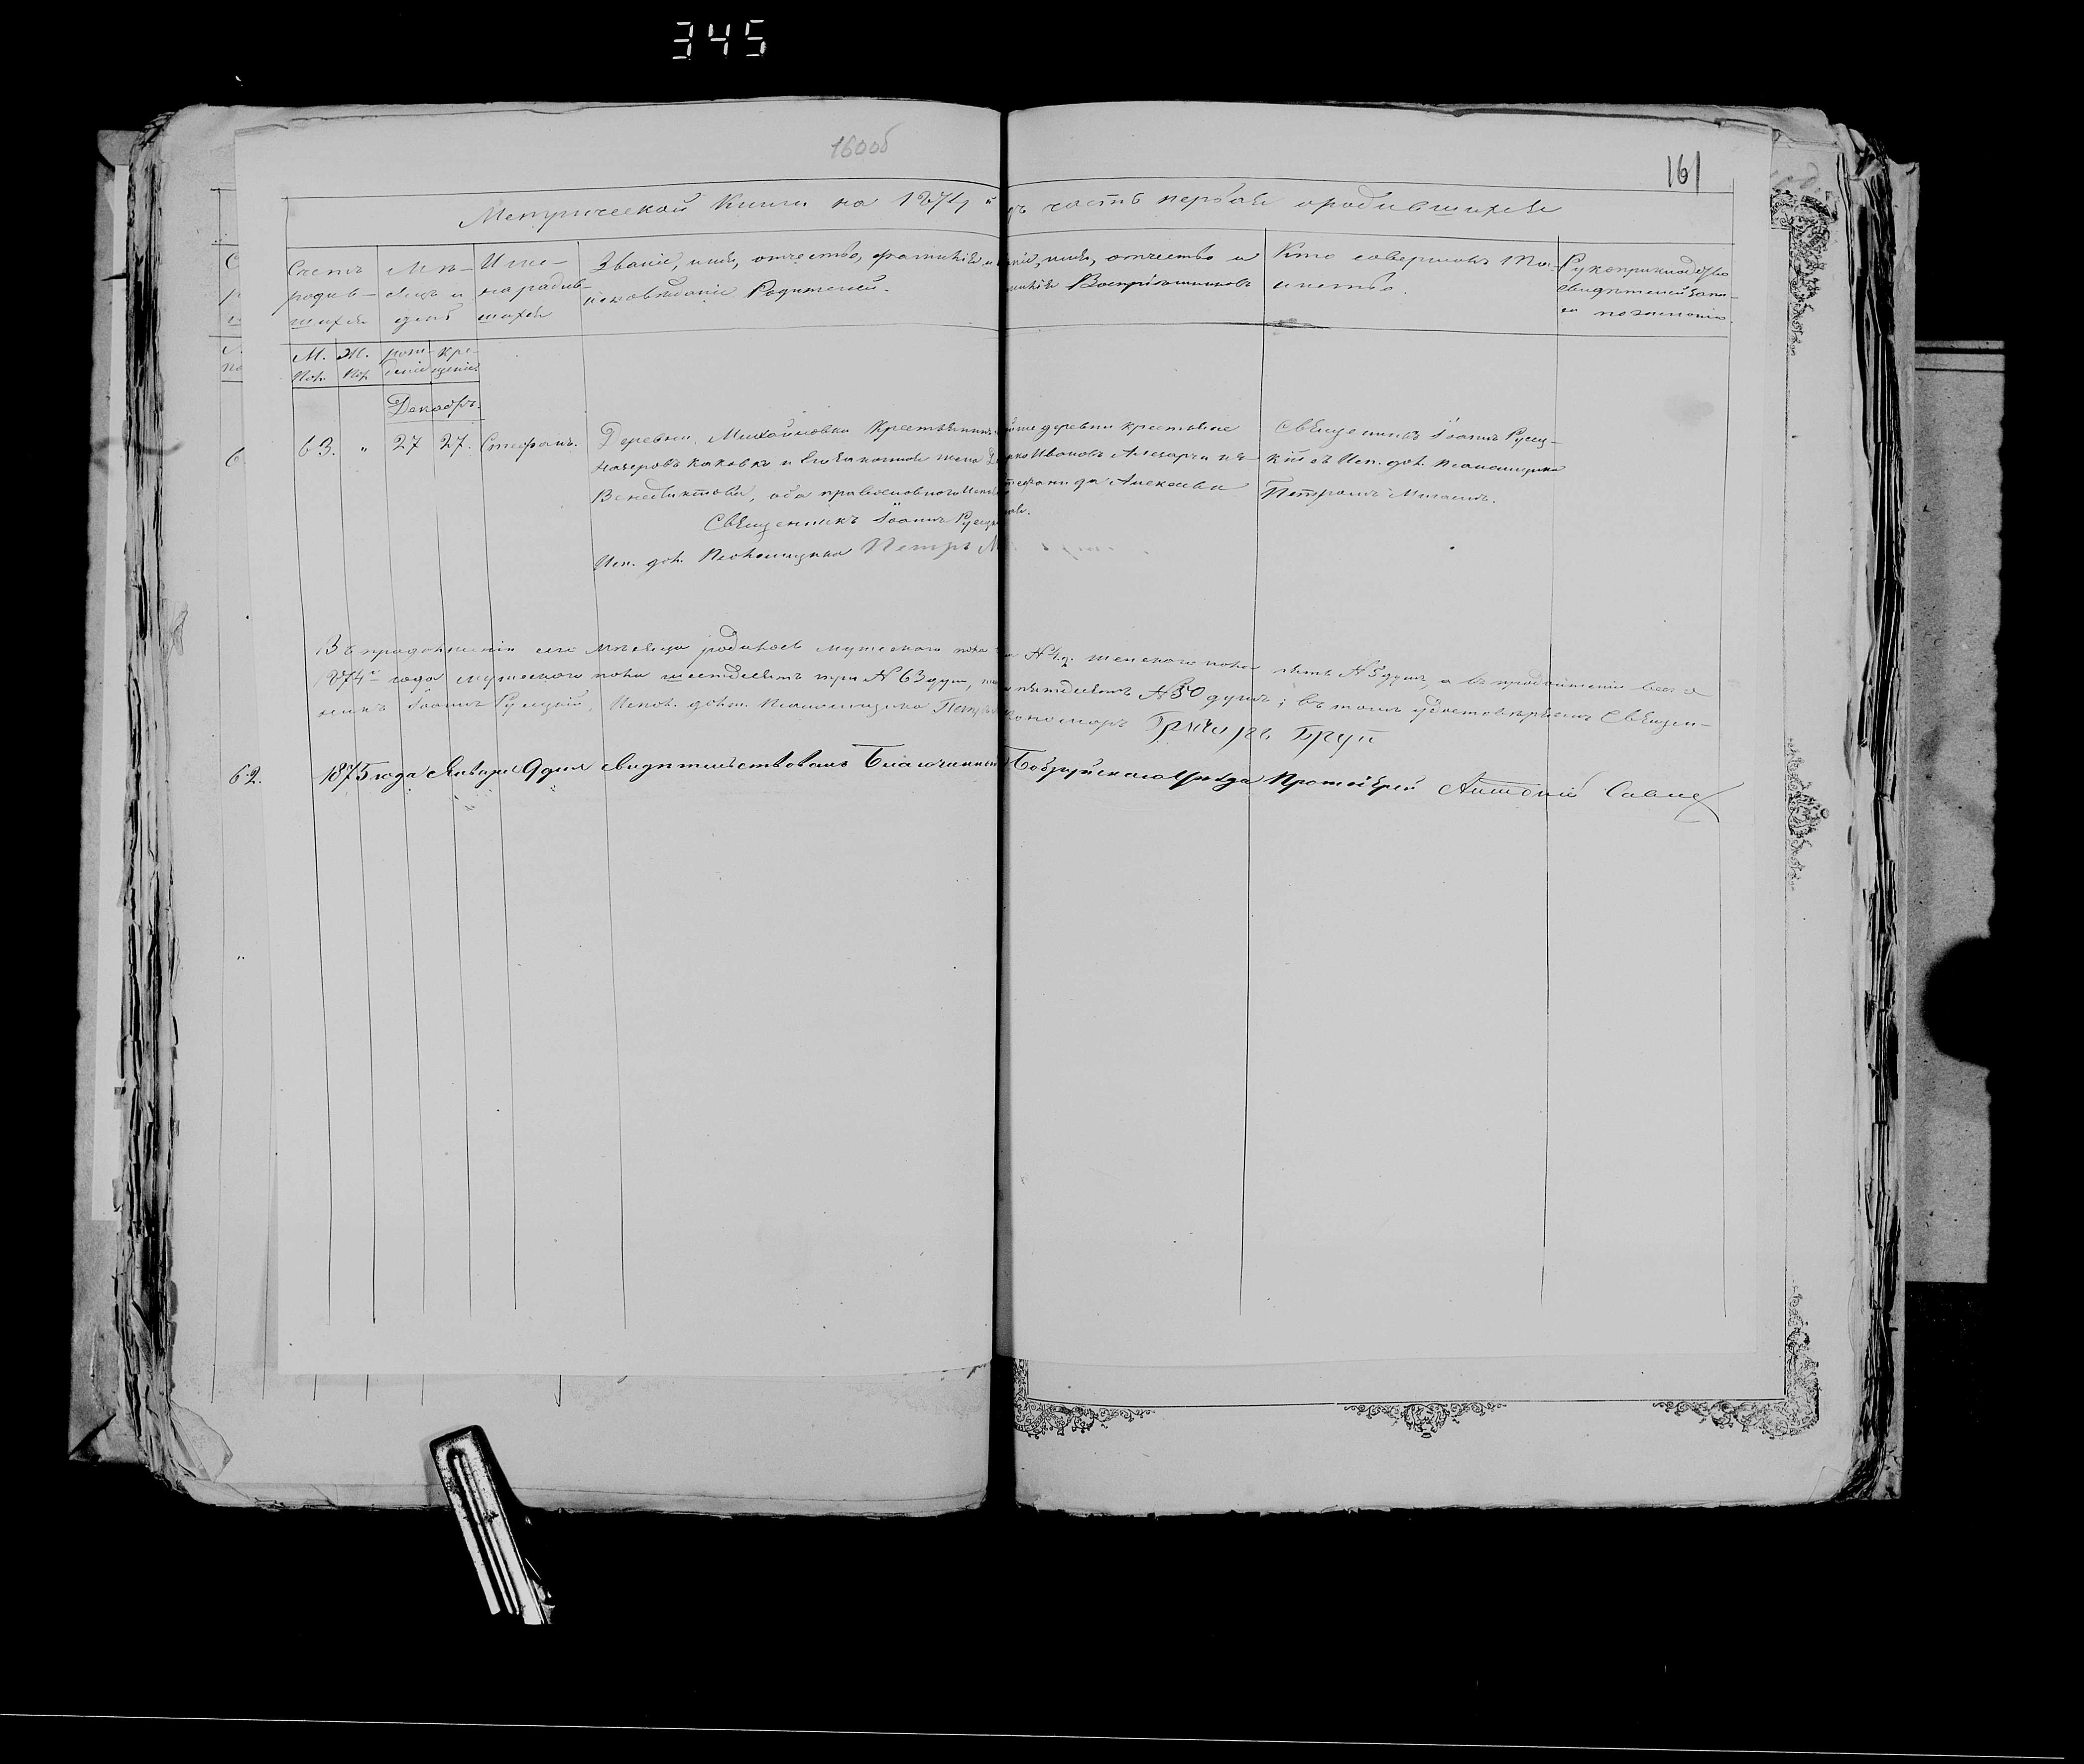 345
160об
161
Метрической Книги на 1874 й годъ часть первая о родившихся
Счетъ родив-шихся
Мѣ-сяцъ и день
Име-на родив-шихся
Званіе, имя, отчество, фамилія и
исповѣданіе Родителей.
имя, отчество и
Воспріемниковъ
Кто совершалъ Та-
инство.
Рукоприкладство
свидѣтелей запи-
си по желанію.
М. пол.
Ж. пол.
рож-денія
кре-щенія
Декабрь.
63. " 27 27. Стефанъ.
Деревни Михайловки Крестьянинъ
и законная жена
Венедиктова, оба православного
Священникъ Іоаннъ Русец
Исп. дол. Псаломщика Петръ М
деревни крестьяне
Ивановъ и
Алексѣева
Священникъ Іоаннъ Русец-
кій съ Исп. дол. Псаломщика
Петромъ
Въ продолженіи сего мѣсяца родилось мужескаго пола женского пола пять № 5 душъ, а въ продолженіи всего
1874 года мужескаго пола шестдесятъ три № 63 душъ, пятдесятъ № 50 душъ; въ томъ удостовѣряемъ Священ-
никъ Іоаннъ Русецкій, Испол. долж. Псаломщика Петръ Пономарь Григорь Бруй
62. 1875 года Января 9 дня свидѣтельствовалъ Благочинный Бобруйскаго Уѣзда Протоіерей Антоній